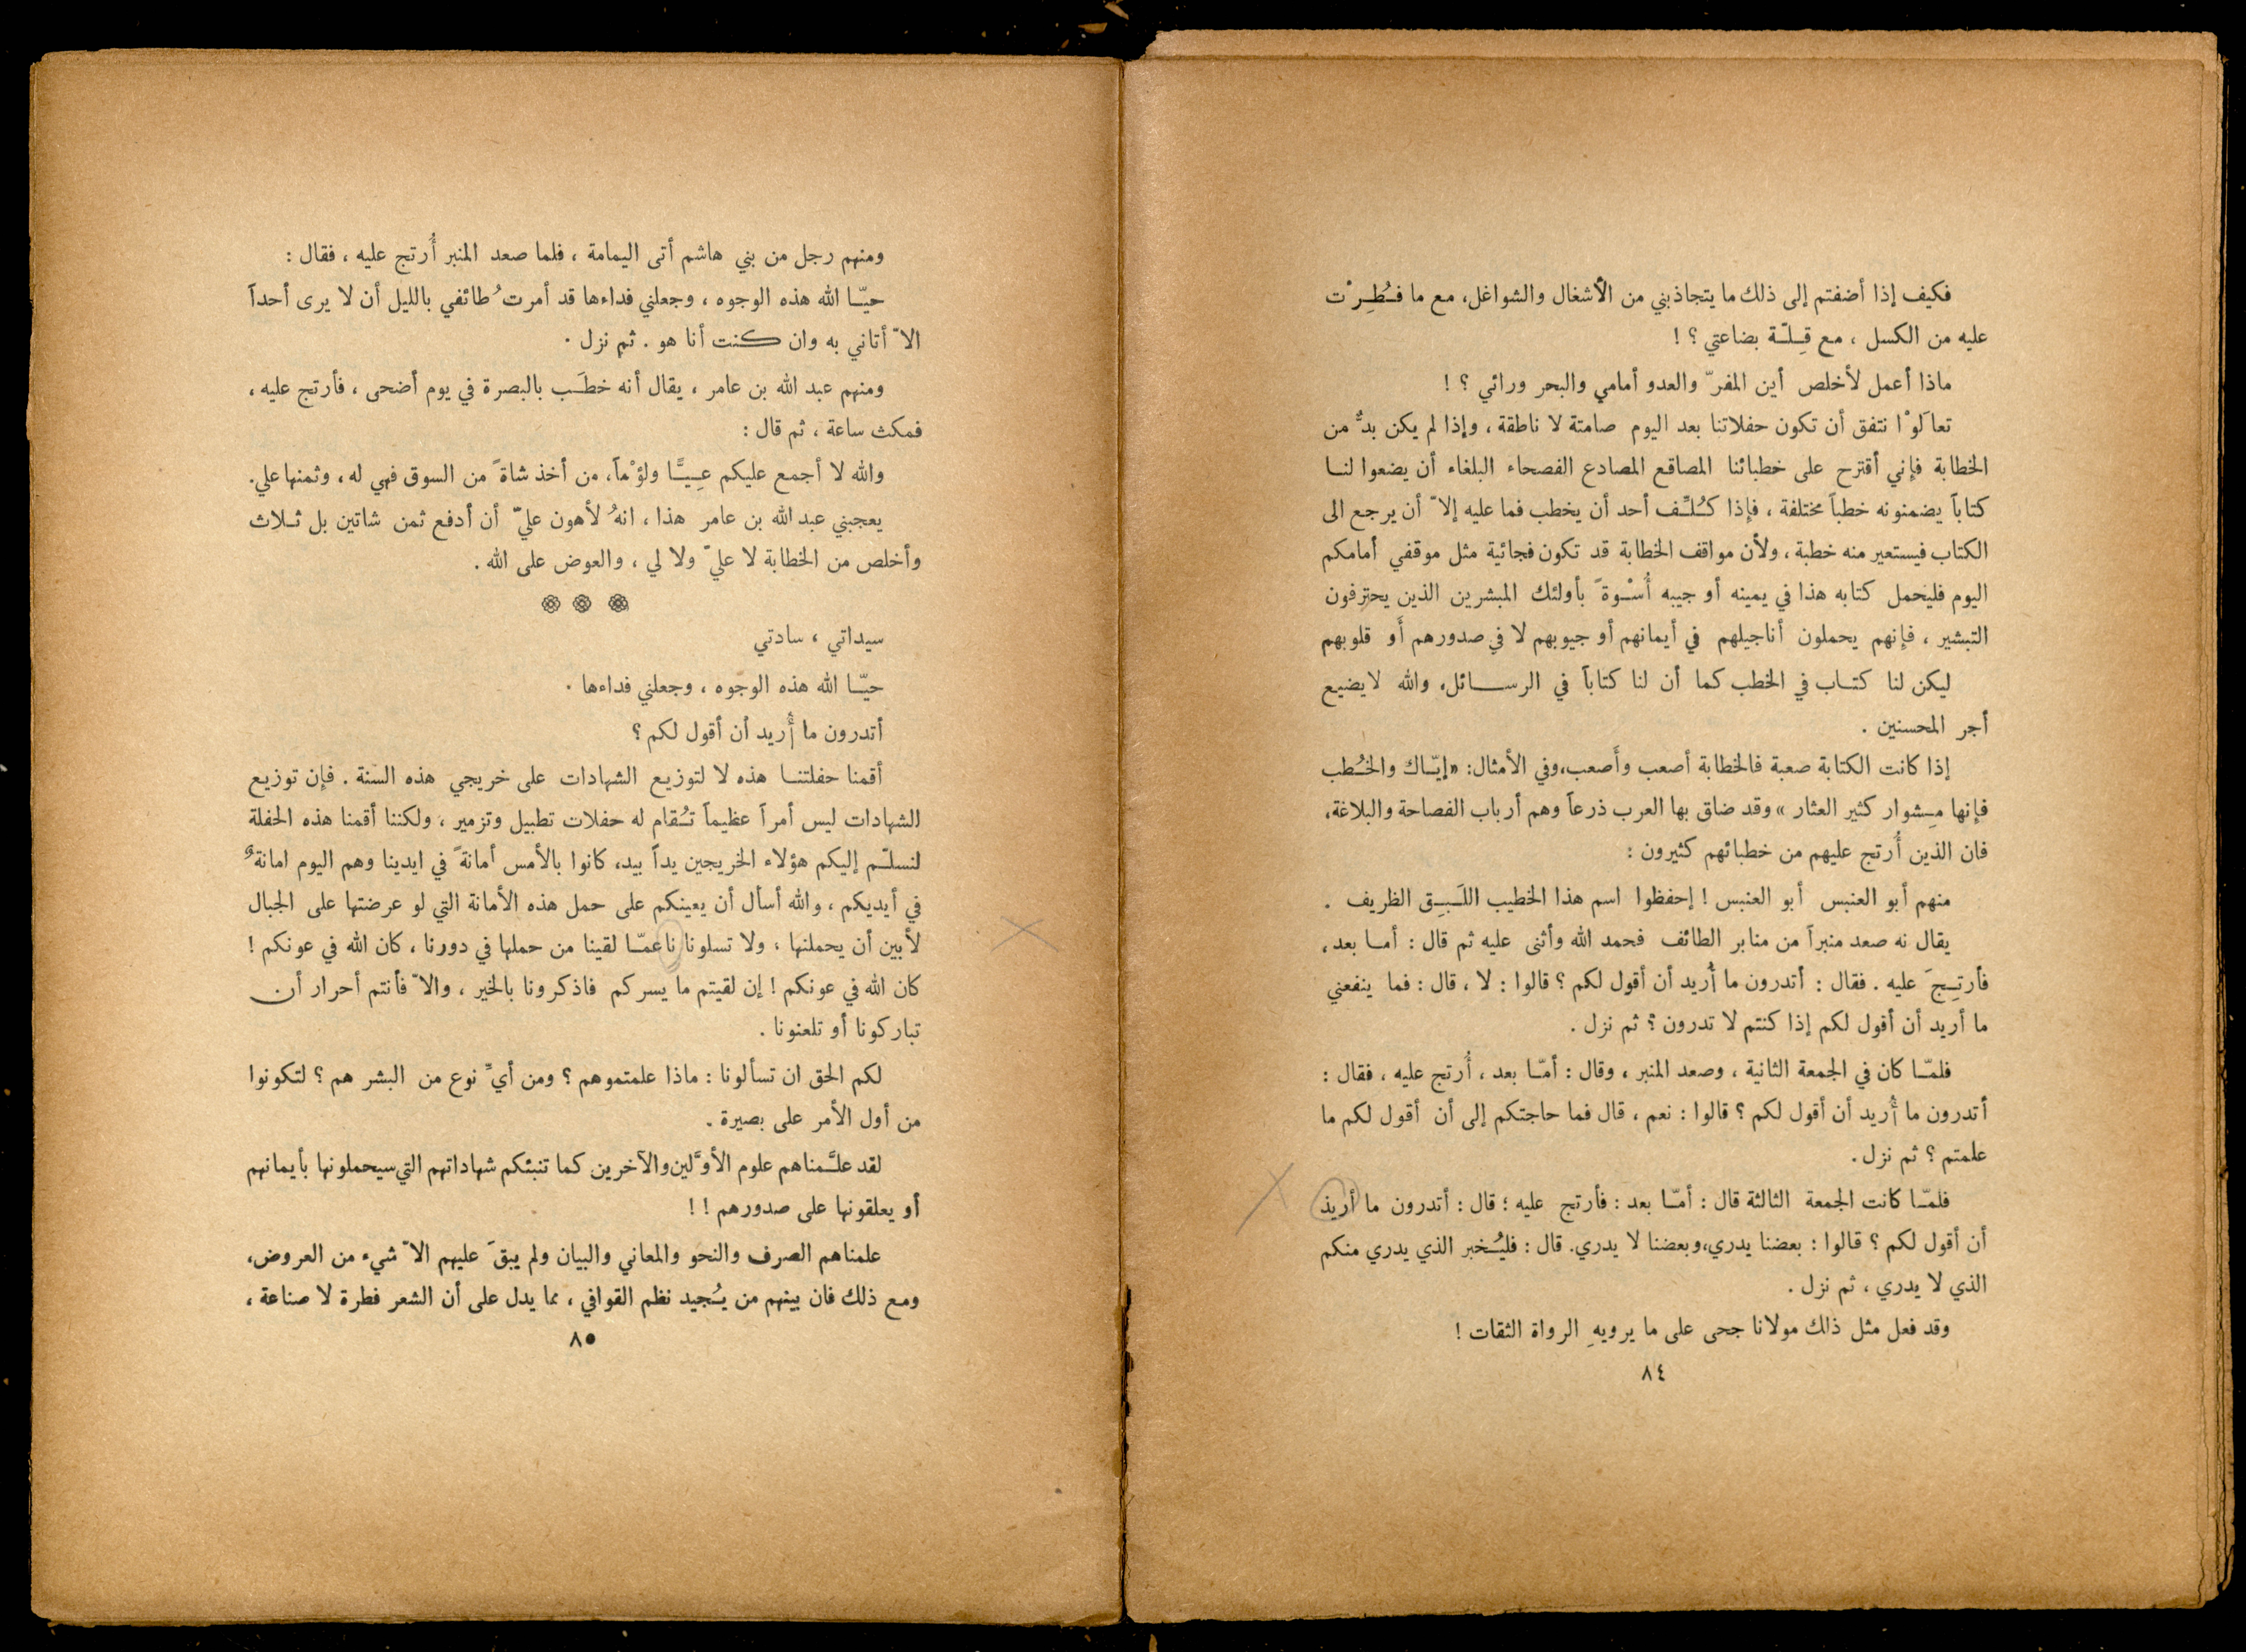 فكيف إذا أضفتم إلى ذلك ما يتجاذبني من الأشغال والشواغل، مع ما فُطِرْت
عليه من الكسل ، مع قِلّة بضاعتي ؟ !
ماذا أعمل لأخلص أين المفرّ والعدو أمامي والبحر ورائي ؟ !
تعالَوْا نتفق أن تكون حفلاتنا بعد اليوم صامتة لا ناطقة ، وإذا لم يكن بدٌّ من
الخطابة فإني أقترح على خطبائنا المصاقع المصادع الفصحاء البلغاء أن يضعوا لنا
كتاباً يضمنونه خطباً مختلفة ، فإذا كُلِّف أحد أن يخطب فما عليه إلاّ أن يرجع الى
الكتاب فيستعير منه خطبة ، ولأن مواقف الخطابة قد تكون فجائية مثل موقفي أمامكم
اليوم فليحمل كتابه هذا في يمينه أو جيبه أُسْوةً بأولئك المبشرين الذين يحترفون
التبشير ، فإنهم يحملون أناجيلهم في أيمانهم أو جيوبهم لا في صدورهم أو قلوبهم
ليكن لنا كتاب في الخطب كما أن لنا كتاباً في الرسائل، والله لا يضيع
أجر المحسنين .
إذا كانت الكتابة صعبة فالخطابة أصعب وأصعب، وفي الأمثال: «إيّاك والخُطب
فإنها مِشوار كثير العثار» وقد ضاق بها العرب ذرعاً وهم أرباب الفصاحة والبلاغة،
فان الذين أُرتج عليهم من خطبائهم كثيرون :
منهم أبو العنبس أبو العنبس ! إحفظوا اسم هذا الخطيب اللَبِق الظريف .
يقال نه صعد منبراً من منابر الطائف فحمد الله وأثنى عليه ثم قال : أما بعد ،
فأرتِجَ عليه . فقال : أتدرون ما أُريد أن أقول لكم ؟ قالوا : لا ، قال : فما ينفعني
ما أريد أن أقول لكم إذا كنتم لا تدرون ؟ ثم نزل .
فلمّا كان في الجمعة الثانية ، وصعد المنبر ، وقال : أمّا بعد ، أُرتج عليه ، فقال :
أتدرون ما أُريد أن أقول لكم ؟ قالوا : نعم ، قال فما حاجتكم إلى أن أقول لكم ما
علمتم ؟ ثم نزل .
فلمّا كانت الجمعة الثالثة قال : أمّا بعد : فأرتج عليه ؛ قال : أتدرون ما أريذ
أن أقول لكم ؟ قالوا : بعضنا يدري، وبعضنا لا يدري. قال : فليُخبر الذي يدري منكم
الذي لا يدري ، ثم نزل .
وقد فعل مثل ذلك مولانا جحى على ما يرويهِ الرواة الثقات !
٨٤
ومنهم رجل من بني هاشم أتى اليمامة ، فلما صعد المنبر أُرتج عليه ، فقال :
حيّا الله هذه الوجوه ، وجعلني فداءها قد أمرتُ طائفي بالليل أن لا يرى أحداً
الاّ أتاني به وان كنت أنا هو . ثم نزل .
ومنهم عبد الله بن عامر ، يقال أنه خطَب بالبصرة في يوم أضحى ، فأرتج عليه ،
فمكث ساعة ، ثم قال :
والله لا أجمع عليكم عِيًّا ولؤْماً، من أخذ شاةً من السوق فهي له ، وثمنها علي.
يعجبني عبد الله بن عامر هذا ، انهُ لأهون عليّ أن أدفع ثمن شاتين بل ثلاث
وأخلص من الخطابة لا عليّ ولا لي ، والعوض على الله .
سيداتي ، سادتي
حيّا الله هذه الوجوه ، وجعلني فداءها .
أتدرون ما أُريد أن أقول لكم ؟
أقمنا حفلتنا هذه لا لتوزيع الشهادات على خريجي هذه السنة . فإن توزيع
الشهادات ليس أمراً عظيماً تُقام له حفلات تطبيل وتزمير ، ولكننا أقمنا هذه الحفلة
لنسلّم إليكم هؤلاء الخريجين يداً بيد، كانوا بالأمس أمانةً في ايدينا وهم اليوم امانةٌ
في أيديكم ، والله أسأل أن يعينكم على حمل هذه الأمانة التي لو عرضتها على الجبال
لأبين أن يحملنها ، ولا تسلونا ناعمّا لقينا من حملها في دورنا ، كان الله في عونكم !
كان الله في عونكم ! إن لقيتم ما يسركم فاذكرونا بالخير ، والاّ فأنتم أحرار أن
تباركونا أو تلعنونا .
لكم الحق ان تسألونا : ماذا علمتموهم ؟ ومن أيِّ نوع من البشر هم ؟ لتكونوا
من أول الأمر على بصيرة .
لقد علَّمناهم علوم الأوَّلين والآخرين كما تنبئكم شهاداتهم التي سيحملونها بأيمانهم
أو يعلقونها على صدورهم ! !
علمناهم الصرف والنحو والمعاني والبيان ولم يبقَ عليهم الاّ شيء من العروض،
ومع ذلك فان بينهم من يُجيد نظم القوافي ، مما يدل على أن الشعر فطرة لا صناعة ،
٨٥